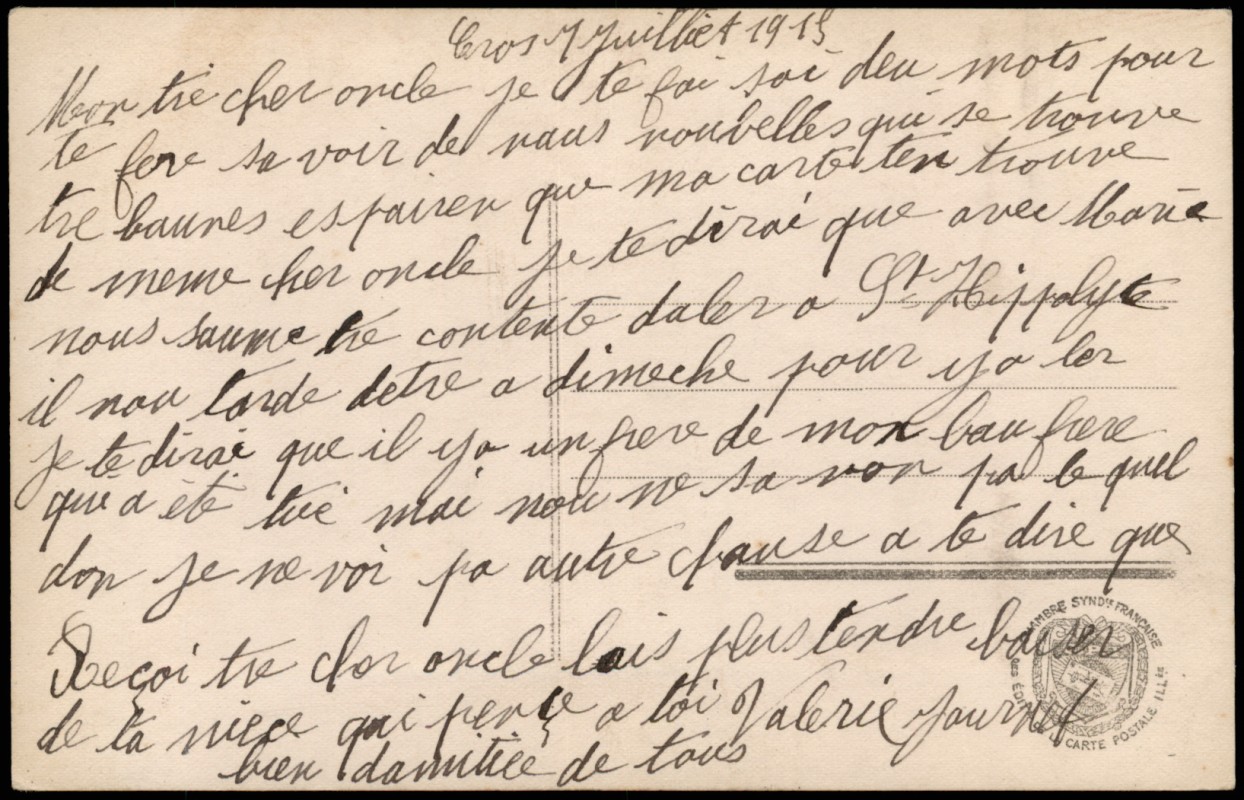 Cros 7 Juilliet 1915
Mon trè cher oncle je te fai sai deu mots pour
te fere sa voir de naus nouvelles qui se trouve
tre baunes espairen que ma carte ten trouve
de meme cher oncle je te dirai que avec Marie
nous saume tre contente daler a St Hippolyte
il nou tarde detre a dimeche pour y a ler
je te dirai que il y a un frere de mon bau frere
qui a été tué mai nou ne sa von pa le quel
don je ne voi pa autre chause a te dire que
Reçoi tre cher oncle lais plus tendre baiser
de ta niece qui pençe a toi Valerie
bien damitiée de tous
CHAMBRE SYNDle FRANÇAISE
CARTE POSTALE ILLée